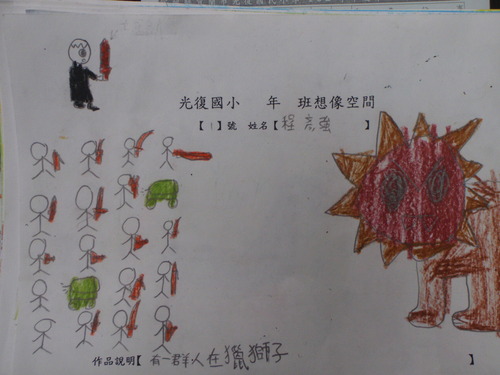 光復國小 年 班想像空間
【1】號 姓名【程 彥強 】
作品說明【有一群人在獵獅子 】